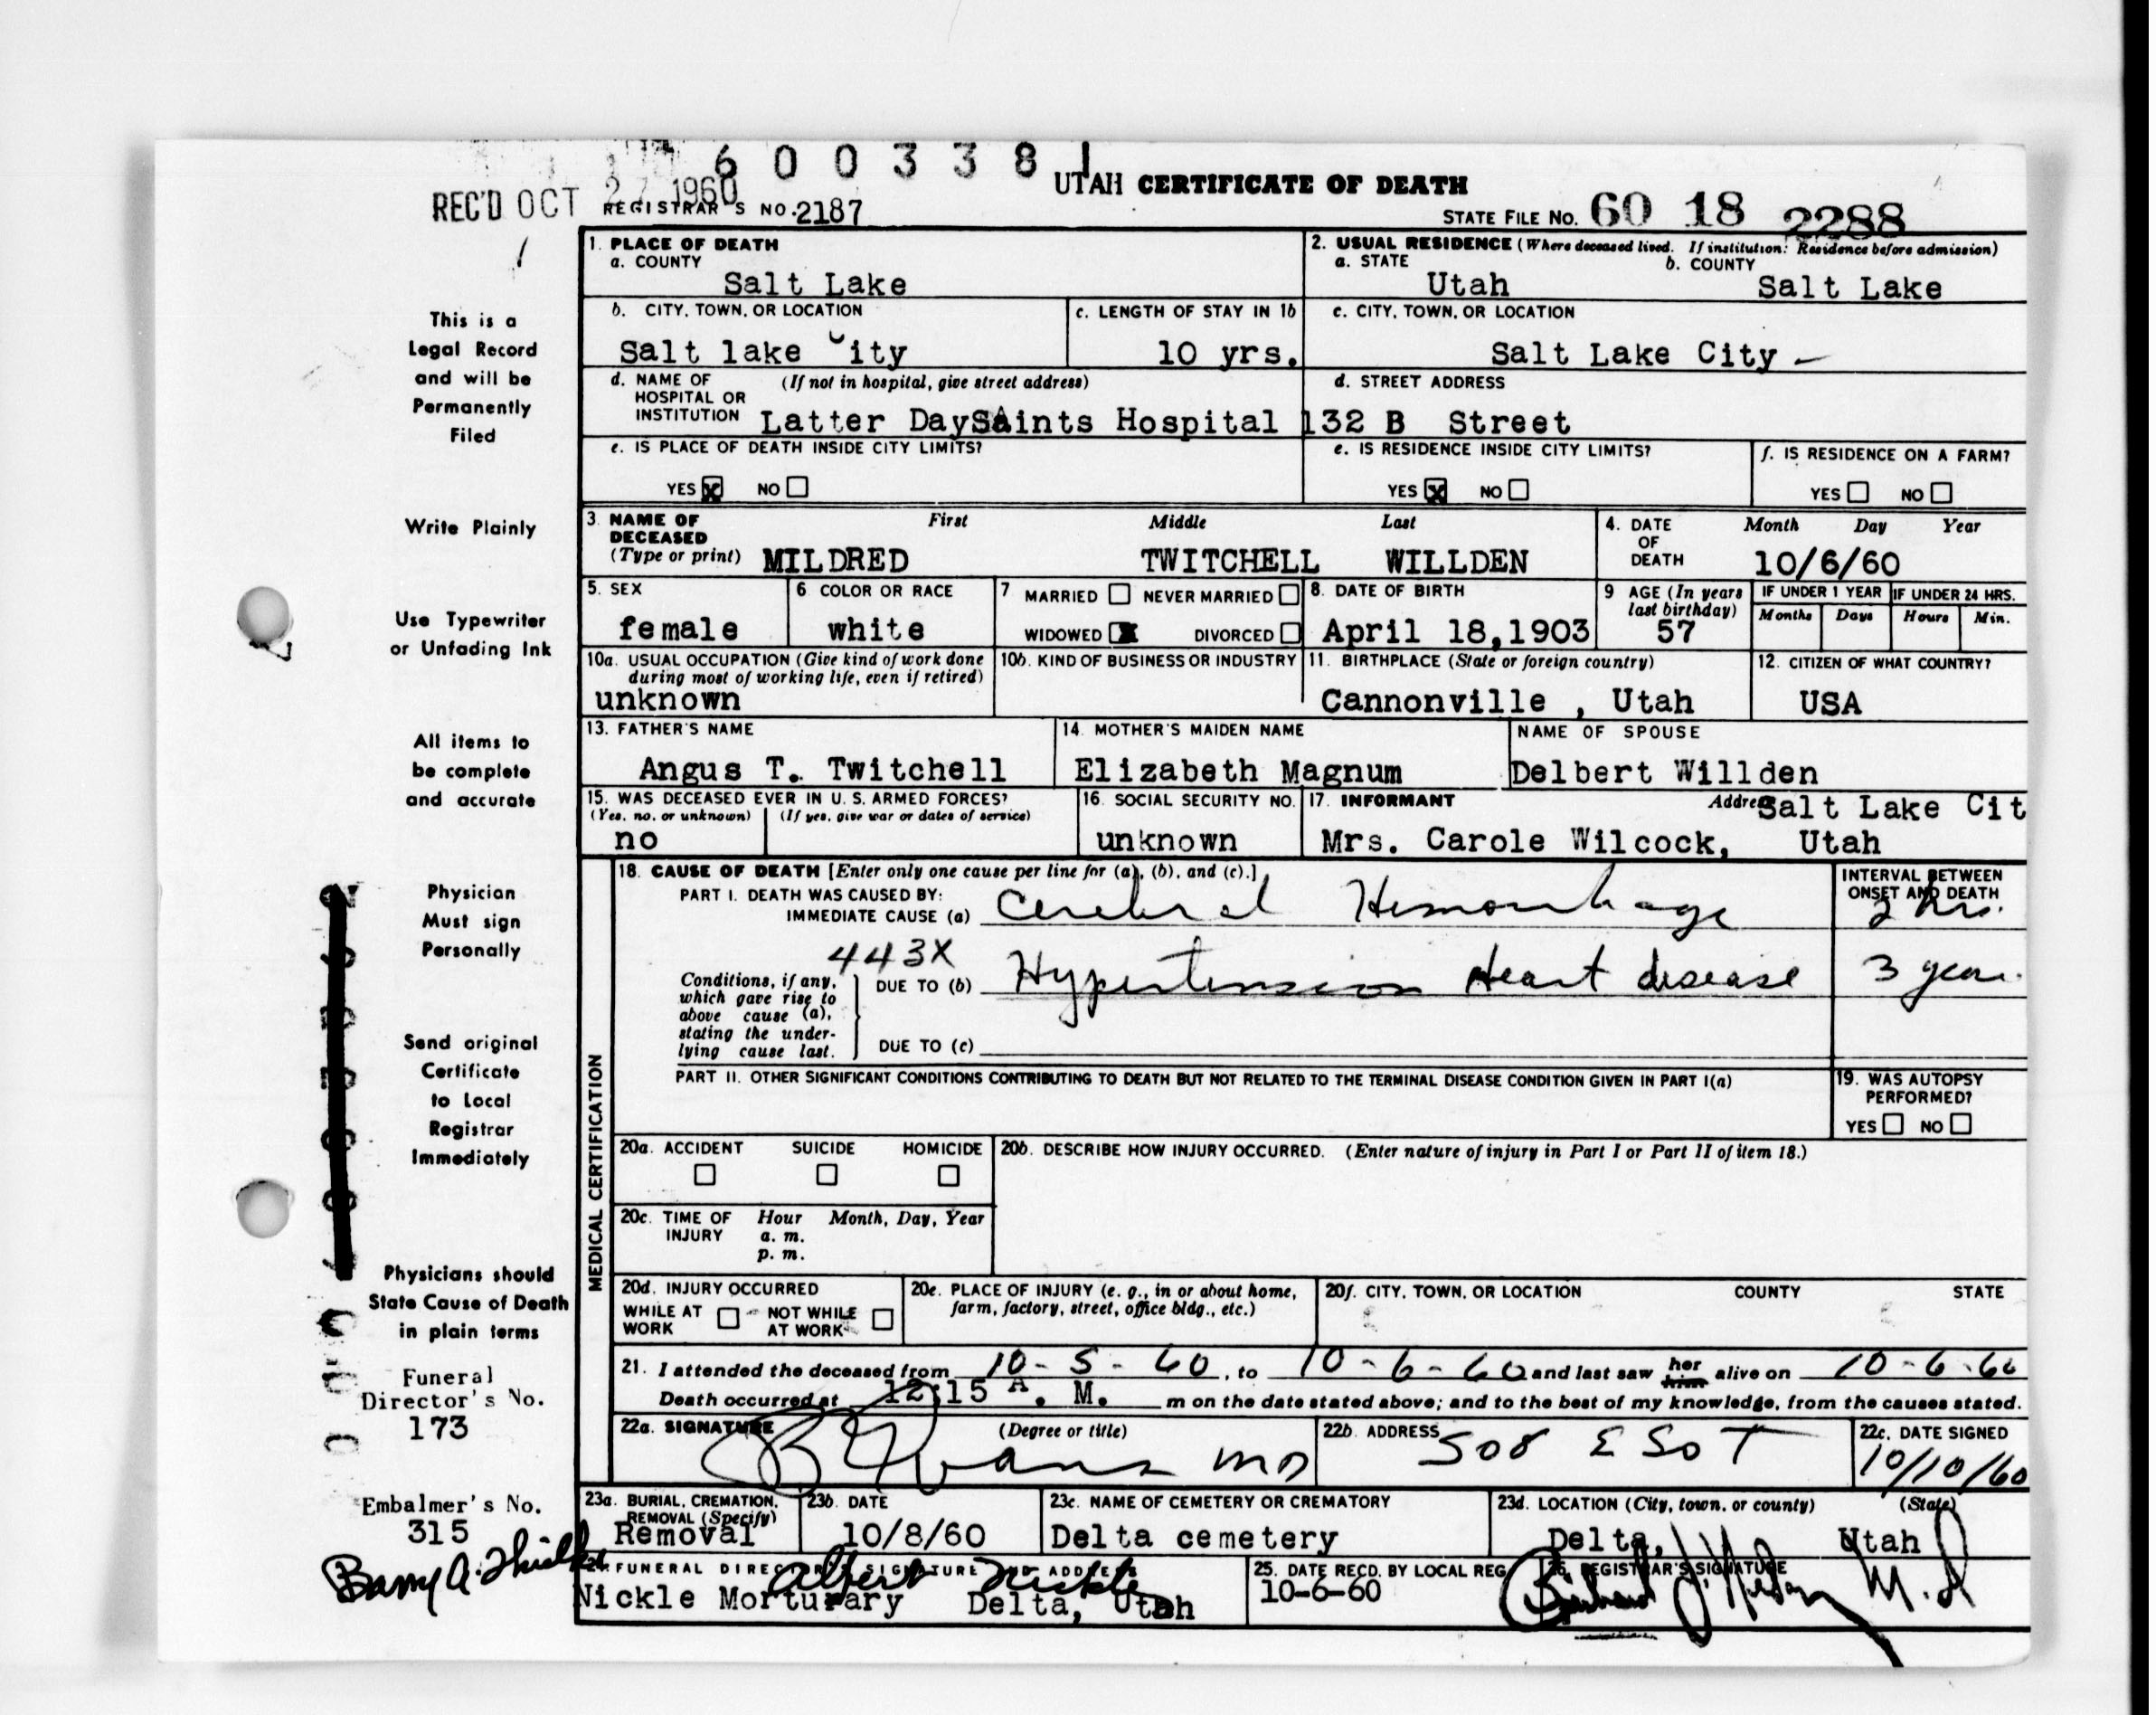 6 0 0 3 3 8 1
REC'D OCT 27 1960
REGISTRAR'S NO. 2187
UTAH CERTIFICATE OF DEATH
STATE FILE NO. 60 18 2288
This is a
Legal Record
and will be
Permanently
Filed
Write Plainly
Use Typewriter
or Unfading Ink
All items to
be complete
and accurate
Physician
Must sign
Personally
Send original
Certificate
to Local
Registrar
Immediately
Physicians should
State Cause of Death
in plain terms
Funeral
Director's No.
173
Embalmer's No.
315
1. PLACE OF DEATH
a. COUNTY
Salt Lake
2. USUAL RESIDENCE (Where deceased lived. If institution: Residence before admission)
a. STATE b. COUNTY
Utah Salt Lake
b. CITY, TOWN, OR LOCATION
Salt lake City
c. LENGTH OF STAY IN 1b
10 yrs.
c. CITY, TOWN, OR LOCATION
Salt Lake City
d. NAME OF (If not in hospital, give street address)
HOSPITAL OR
INSTITUTION Latter DaySaints Hospital
d. STREET ADDRESS
132 B Street
e. IS PLACE OF DEATH INSIDE CITY LIMITS?
YES X NO
e. IS RESIDENCE INSIDE CITY LIMITS?
YES X NO
f. IS RESIDENCE ON A FARM?
YES NO
3. NAME OF First Middle Last
DECEASED
(Type or print) MILDRED TWITCHELL WILLDEN
4. DATE Month Day Year
OF
DEATH 10/6/60
5. SEX
female
6 COLOR OR RACE
white
7 MARRIED NEVER MARRIED
WIDOWED X DIVORCED
8. DATE OF BIRTH
April 18,1903
9 AGE (In years
last birthday)
57
IF UNDER 1 YEAR IF UNDER 24 HRS.
Months Days Hours Min.
10a. USUAL OCCUPATION (Give kind of work done
during most of working life, even if retired)
unknown
10b. KIND OF BUSINESS OR INDUSTRY
11. BIRTHPLACE (State or foreign country)
Cannonville , Utah
12. CITIZEN OF WHAT COUNTRY?
USA
13. FATHER'S NAME
Angus T. Twitchell
14. MOTHER'S MAIDEN NAME
Elizabeth Magnum
NAME OF SPOUSE
Delbert Willden
15. WAS DECEASED EVER IN U. S. ARMED FORCES?
(Yes, no, or unknown) (If yes, give war or dates of service)
no
16. SOCIAL SECURITY NO.
unknown
17. INFORMANT Address Salt Lake Cit
Mrs. Carole Wilcock, Utah
MEDICAL CERTIFICATION
18. CAUSE OF DEATH [Enter only one cause per line for (a), (b), and (c).]
PART I. DEATH WAS CAUSED BY:
IMMEDIATE CAUSE (a) Cerebral Hemorrhage
INTERVAL BETWEEN
ONSET AND DEATH
2 hrs.
443X
Conditions, if any,
which gave rise to
above cause (a),
stating the under-
lying cause last.
DUE TO (b) Hypertension Heart disease
3 years
DUE TO (c)
PART II. OTHER SIGNIFICANT CONDITIONS CONTRIBUTING TO DEATH BUT NOT RELATED TO THE TERMINAL DISEASE CONDITION GIVEN IN PART I(a)
19. WAS AUTOPSY
PERFORMED?
YES NO
20a. ACCIDENT SUICIDE HOMICIDE
20b. DESCRIBE HOW INJURY OCCURRED. (Enter nature of injury in Part I or Part II of item 18.)
20c. TIME OF Hour Month, Day, Year
INJURY a. m.
p. m.
20d. INJURY OCCURRED
WHILE AT NOT WHILE
WORK AT WORK
20e. PLACE OF INJURY (e. g., in or about home,
farm, factory, street, office bldg., etc.)
20f. CITY, TOWN, OR LOCATION COUNTY STATE
21. I attended the deceased from 10-5-60, to 10-6-60 and last saw her him alive on 10-6-60
Death occurred at 12:15 A. M. m on the date stated above; and to the best of my knowledge, from the causes stated.
22a. SIGNATURE (Degree or title)
Evans MD
22b. ADDRESS
508 E So T
22c. DATE SIGNED
10/10/60
23a. BURIAL, CREMATION,
REMOVAL (Specify)
Removal
23b. DATE
10/8/60
23c. NAME OF CEMETERY OR CREMATORY
Delta cemetery
23d. LOCATION (City, town, or county) (State)
Delta, Utah
24. FUNERAL DIRECTOR'S SIGNATURE AND ADDRESS
Albert Nickle
Nickle Morturary Delta, Utah
25. DATE RECD. BY LOCAL REG.
10-6-60
26. REGISTRAR'S SIGNATURE
M.D